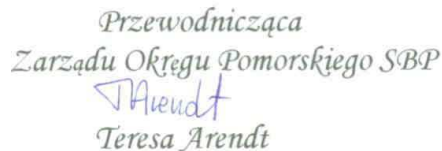 Przewodnicząca
Zarządu Okręgu Pomorskiego SBP
TArendt
Teresa Arendt